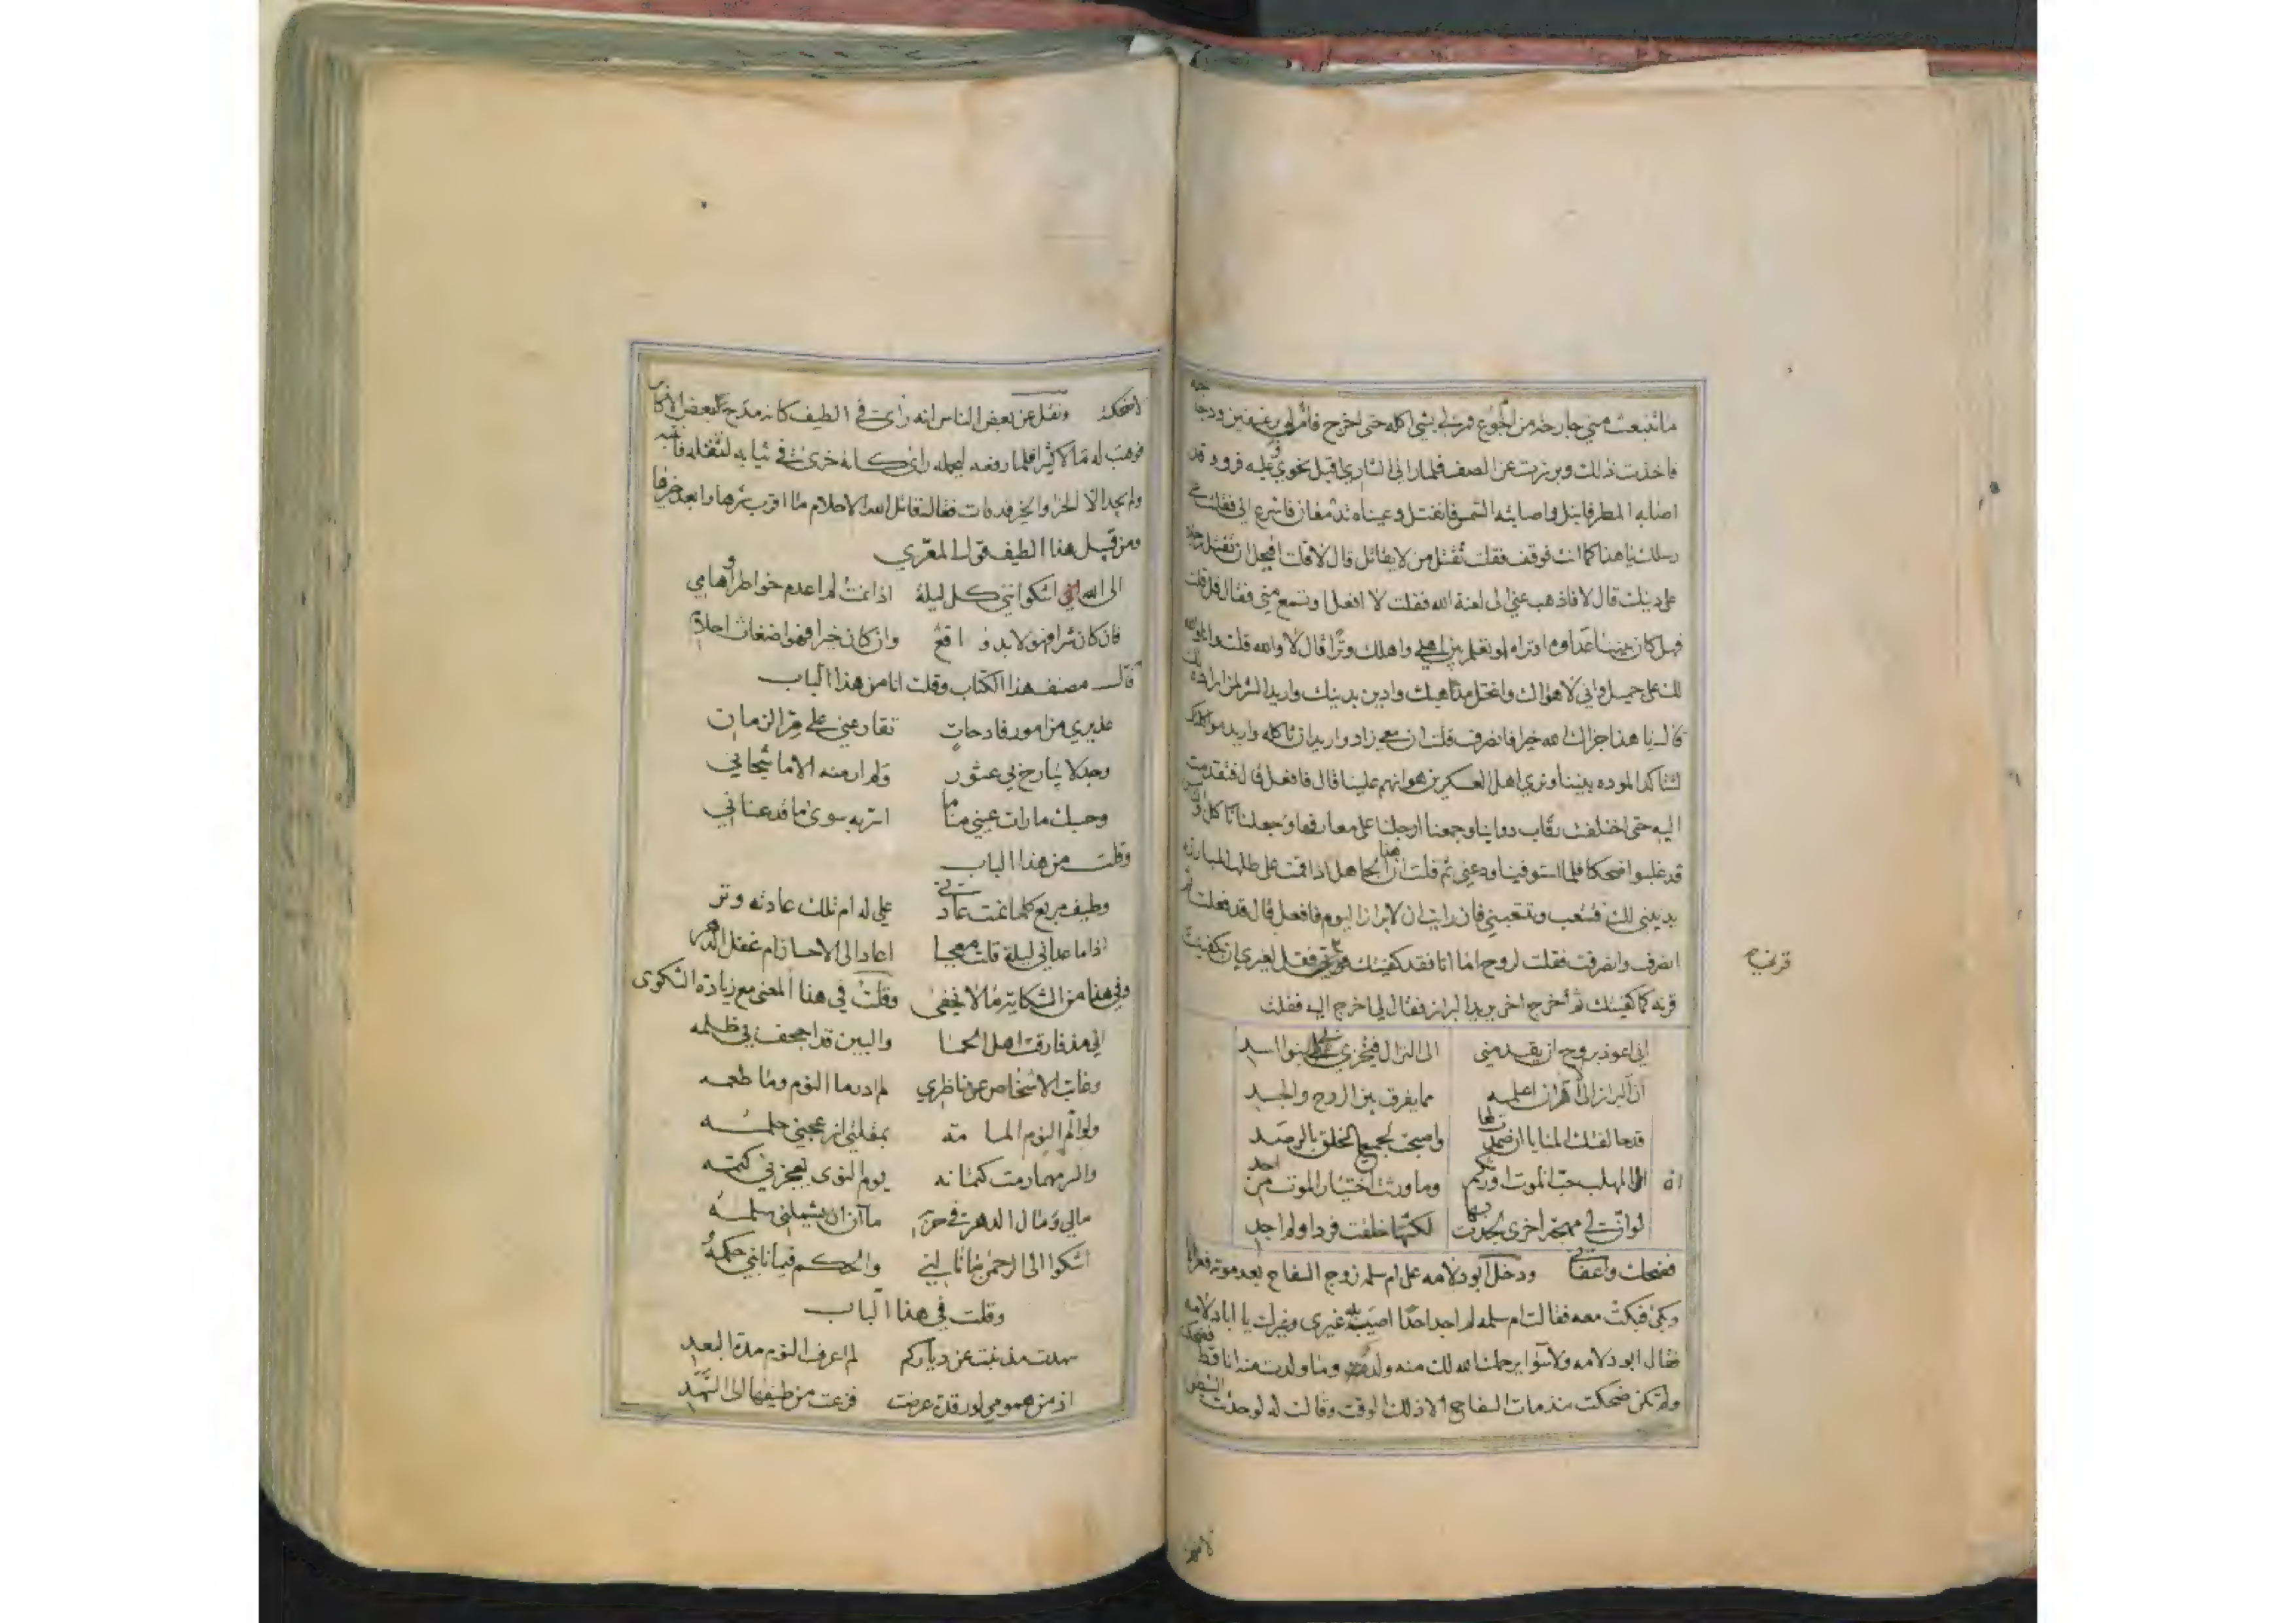 ما تنبعث مني جارحة من الجوع فمر لي بشي اكله حتى اخرج فامر لي برغيفين ودجاجه
فاخذت ذلك وبرزت عن الصف فلما راني الشاري اقبل نحوي وعليه فرو قد
اصابه المطر فابتل واصابته الشمس فانفتل وعيناه تذر فاسرع الي فقلت على
رسلك يا هذا كما انت فوقف فقلت تقتل من لا يقاتل قال لا قلت افيحل ان تقتل رجلا
على دينك قال لا فاذهب عني الى لعنة الله فقلت لا افعل او تسمع مني فقال قل قلت
فهل كان بيننا عداوة او تراه او تعلم بين اهلي واهلك وترا قال لا والله قلت ولا انا والله
لك على جميل واني لاهواك وانتحل مذاهبك وادين بدينك واريد الشر لمن اراده لك
قال يا هذا جزاك الله خيرا فانصرف قلت ان معي زاد واريد ان ناكله واريد مواكلتك
لتتاكد الموده بيننا ونري اهل العسكرين هوانهم علينا قال فافعل قال فتقدمت
اليه حتى اختلفت رقاب دوابنا وجمعنا ارجلنا على معارفها وجعلنا ناكل والناس
قد غلبوا ضحكا فلما استوفينا ودعني ثم قلت ان هذا الجاهل اذا اقمت على طلب المبارزه
يدبني لك فتتعب وتتعبني فان رايت ان لا براز اليوم فافعل قال قد فعلت ثم
انصرف وانصرفت فقلت لروح اما انا فقد كفيتك قرني فقل لغيري ان يكفيك
قرنه كما كفيتك ثم اخرج اخر يريد البراز فقال لي اخرج اليه فقلت
اني اعوذ بروح ان يقدمني الى النزال فيخزي بي بنوا اسد
ان البراز الى الاقران اعلمه مما يفرق بين الروح والجسد
قد حالفتك المنايا ان صمدت لها واصبحت لجميع الخلق بالرصد
ان المهلب حب الموت اورثكم وما ورثت اختيار الموت من احد
لو ان لي مهجة اخرى لجدت بها لكنها خلقت فردا ولم اجد
فضحك واعفاني ودخل ابو دلامه على ام سلمه زوج السفاح بعد موته فعزاها
وبكى فبكت معه فقالت ام سلمه لم اجد احدا اصيب به غيري وغيرك يا ابا دلامه
فقال ابو دلامه ولا سوا يرحمك الله لك منه ولد وما ولدت منه انا قط فضحكت
ولم تكن ضحكت منذ مات السفاح الا ذلك الوقت وقالت له لو حدثت
لاضحكته ونقل عن بعض الناس انه راى في الطيف كانه مدح بعض الاكابر
فوهب له مالا كثيرا فلما رفعه ليحمله راى كانه خري في ثيابه لثقله فانتبه
ولم يجد الا الخرا والخير قد فات فقال قاتل الله الاحلام ما اقرب شرها وابعد خيرها
ومن قبيل هذا الطيف قول المعري
الى الله اشكوا انني كل ليلة اذا نمت لم اعدم خواطر اوهامي
فان كان شرا فهو لا بد واقع وان كان خيرا فهو اضغاث احلام
قال مصنف هذا الكتاب وقلت انا من هذا الباب
عذيري من امور فادحات تقارعني على مر الزمان
وجد لا يبارح بي عثور ولم ار منه الا ما شجاني
وحسبك ما رات عيني مناما اسر به سوى ما قد عناني
وقلت من هذا الباب
وطيف مريع كلما نمت عادني على له ام تلك عادته وتر
اذا ما عداني ليلة قلت معجبا اعاد الى الاحسان ام غفل الدهر
وفي هذا من الشكاية ما لا يخفى وقلت في هذا المعنى مع زيادة الشكوى
اني مذ فارقت اهل الحما والبين قد اجحف بي ظلمه
وغاب الاشخاص عن ناظري لم ادر ما النوم وما طعمه
ولو الم النوم المامة بمقلتي ازعجني حلمه
والسر مهما رمت كتمانه يوم النوى يعجزني كتمه
مالي وما للدهر في حربه ما آن ان يشملني سلمه
اشكوا الى الرحمن ما نابني والحكم فيما نابني حكمه
وقلت في هذا الباب
سهدت مذ غبت عن دياركم لم اعرف النوم مدة البعد
اذ من همومي لو رقدة عرضت فزعت من طيفها الى السهد